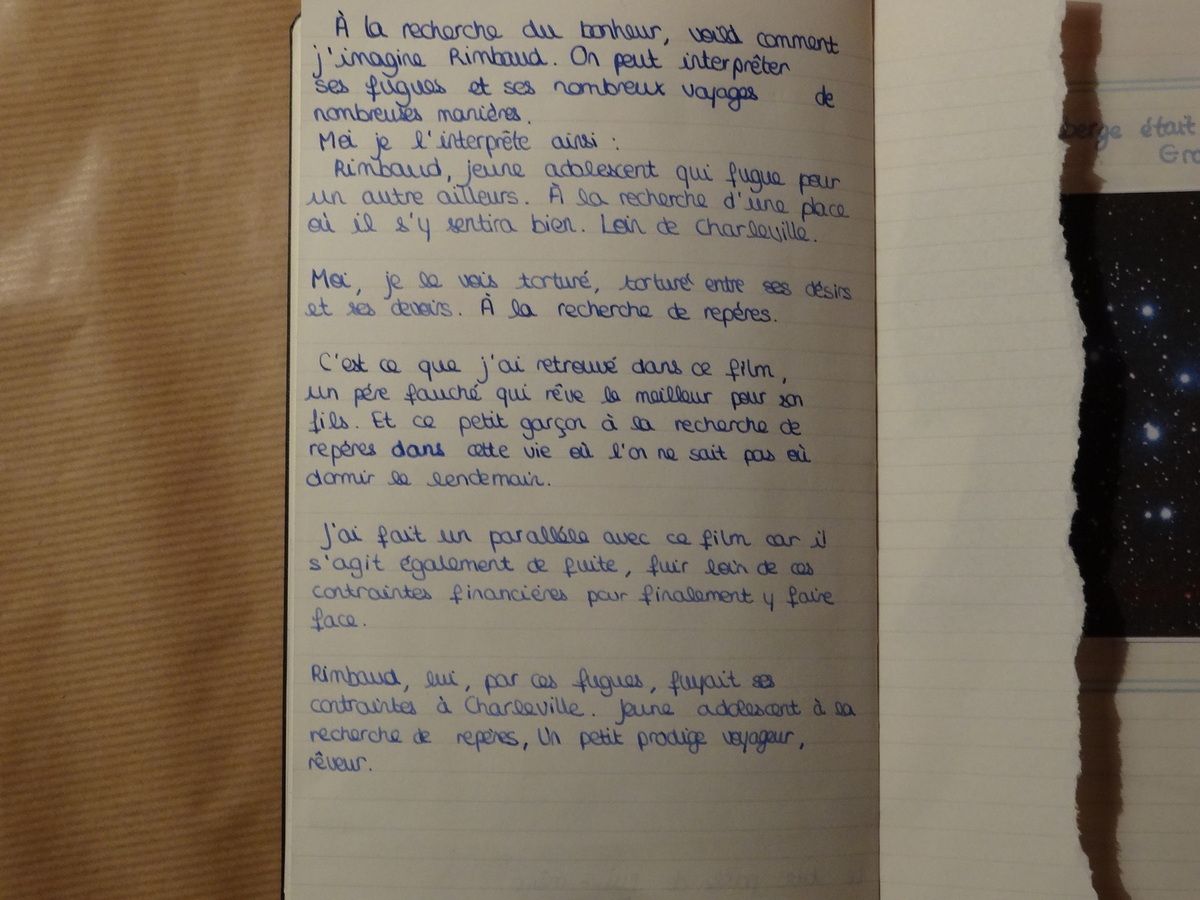 À la recherche du bonheur, voilà comment
j'imagine Rimbaud. On peut interprêter
ses fugues et ses nombreux voyages de
nombreuses manières.
Moi je l'interprête ainsi :
Rimbaud, jeune adolescent qui fugue pour
un autre ailleurs. À la recherche d'une place
où il s'y sentira bien. Loin de Charleville.
Moi, je le vois torturé, torturé entre ses désirs
et ses devoirs. À la recherche de repéres.
C'est ce que j'ai retrouvé dans ce film,
un pére fauché qui rêve le meilleur pour son
fils. Et ce petit garçon à la recherche de
repéres dans cette vie où l'on ne sait pas où
dormir le lendemain.
J'ai fait un paralléle avec ce film car il
s'agit également de fuite, fuir loin de ces
contraintes financiéres pour finalement y faire
face.
Rimbaud, lui, par ces fugues, fuyait ses
contraintes à Charleville. Jeune adolescent à la
recherche de repéres, Un petit prodige voyageur,
rêveur.
berge était
Gra